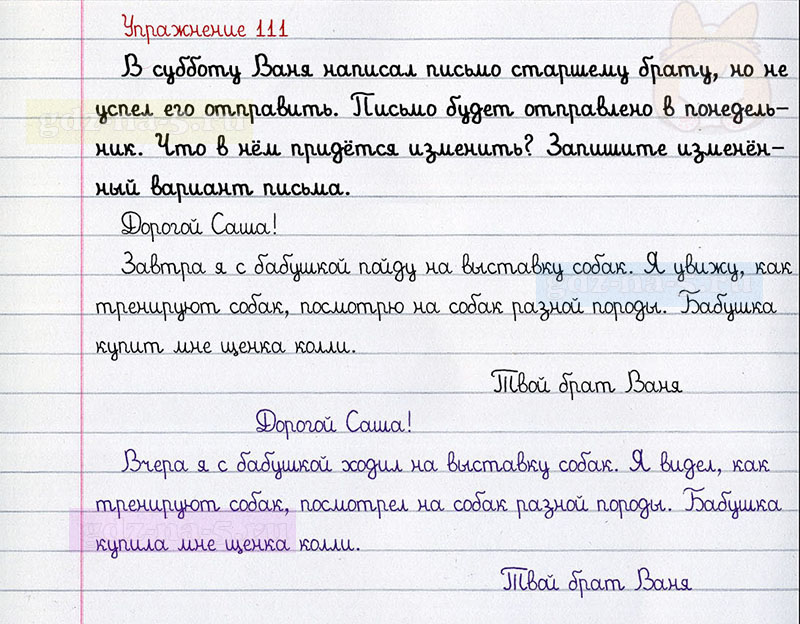 Упражнение 111
В субботу Ваня написал письмо старшему брату, но не
успел его отправить. Письмо будет отправлено в понедель-
ник. Что в нём придётся изменить? Запишите изменён-
ный вариант письма.
Дорогой Саша!
Завтра я с бабушкой пойду на выставку собак. Я увижу, как
тренируют собак, посмотрю на собак разной породы. Бабушка
купит мне щенка колли.
Твой брат Ваня
Дорогой Саша!
Вчера я с бабушкой ходил на выставку собак. Я видел, как
тренируют собак, посмотрел на собак разной породы. Бабушка
купила мне щенка колли.
Твой брат Ваня
gdz-na-5.ru
gdz-na-5.ru
gdz-na-5.ru